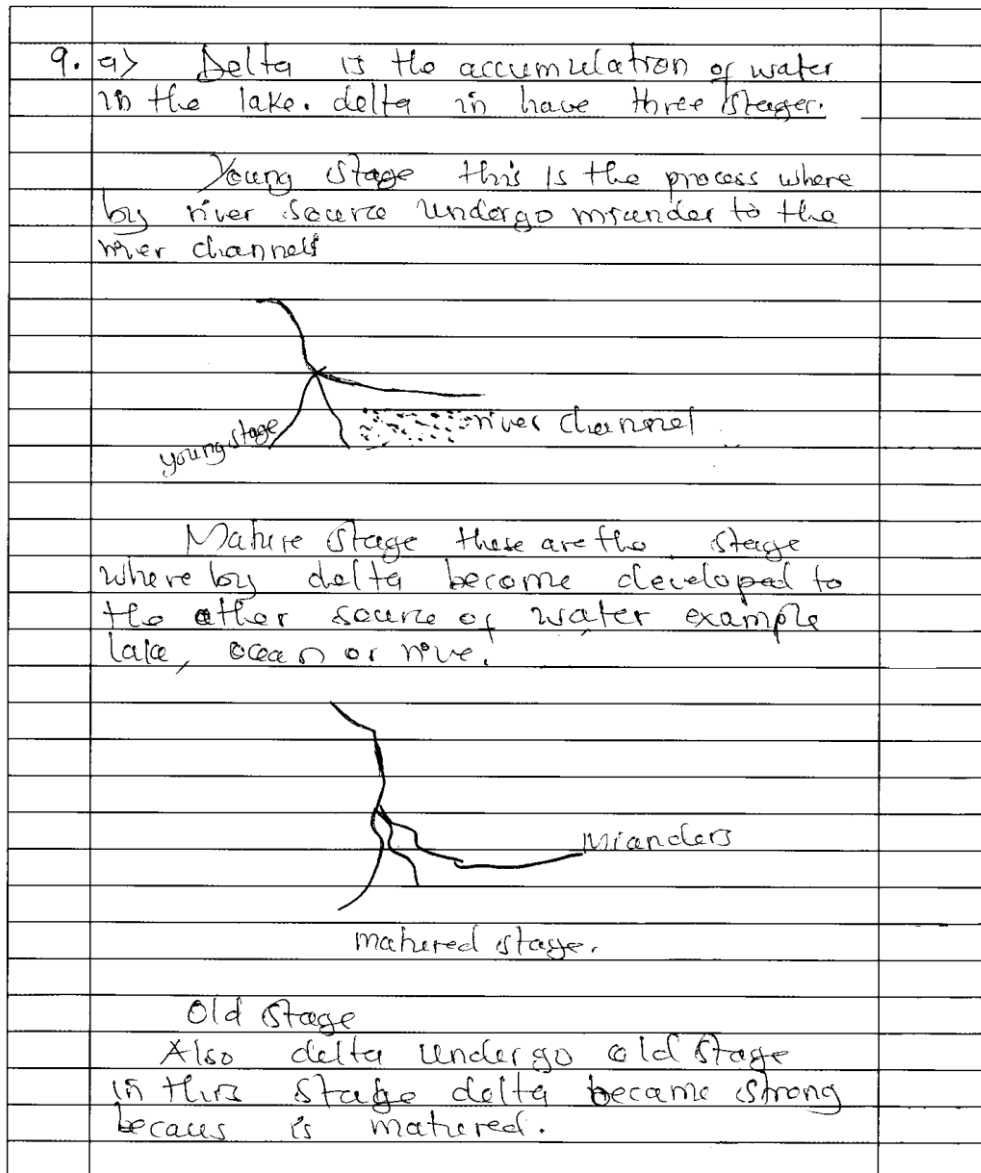 9. a) Delta is the accumulation of water
in the lake. delta in have three stager.
Young stage this is the process where
by river source undergo miander to the
river channels
river channel
young stage
Mature stage these are the stage
where by delta become developed to
the other source of water example
lake, ocean or rive.
Mianders
matured stage.
Old stage
Also delta undergo old stage
in this stage delta became strong
becaus is matured.